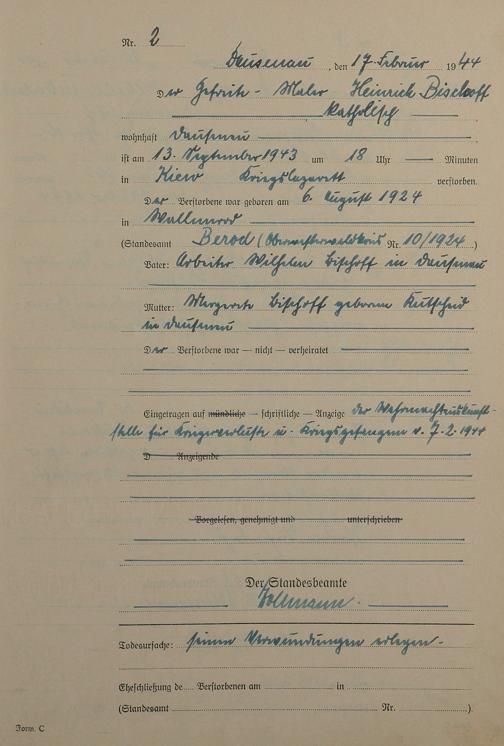 Nr. 2
Dausenau, den 17. Februar 1944
Der Gefreite - Maler Heinrich Bischoff
katholisch
wohnhaft Dausenau
ist am 13. September 1943 um 18 Uhr — Minuten
in Kiew Kriegslazarett verstorben.
Der Verstorbene war geboren am 6. August 1924
in Wallmerod
(Standesamt Berod (Oberwesterwaldkreis Nr. 10/1924)
Vater: Arbeiter Wilhelm Bischoff in Dausenau
Mutter: Margarete Bischoff geborene Kutscheid
in Dausenau
Der Verstorbene war — nicht — verheiratet
Eingetragen auf mündliche — schriftliche — Anzeige der Wehrmachtauskunft-
stelle für Kriegerverluste u. Kriegsgefangene v. 7.2.1944
D Anzeigende
Vorgelesen, genehmigt und unterschrieben
Der Standesbeamte
Todesursache: seinen Verwundungen erlegen.
Eheschließung de Verstorbenen am in
(Standesamt Nr. ).
Form. C